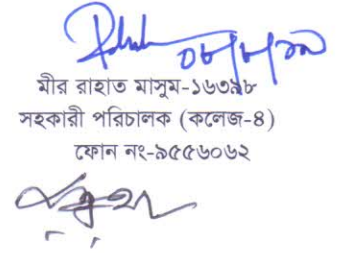 ০৮/৮/১৯
মীর রাহাত মাসুম-১৬৩৯৮
সহকারী পরিচালক (কলেজ-৪)
ফোন নং-৯৫৫৬০৬২